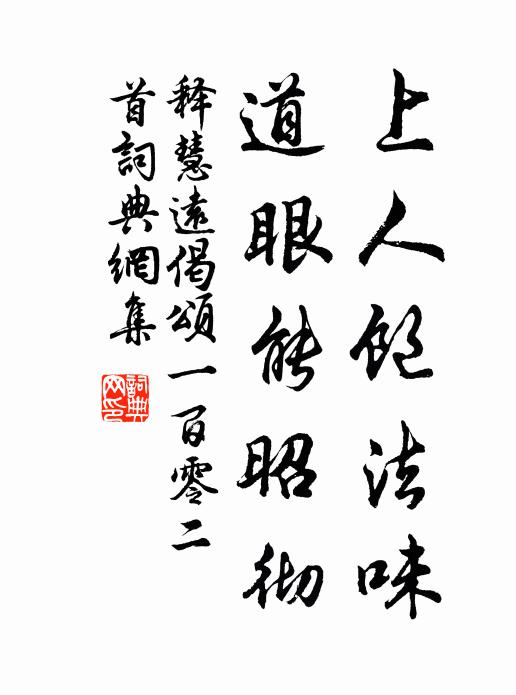 上人飽法味
道眼能昭彻
释慧遠偈頌一百零二
首詞典網集
詞典网印